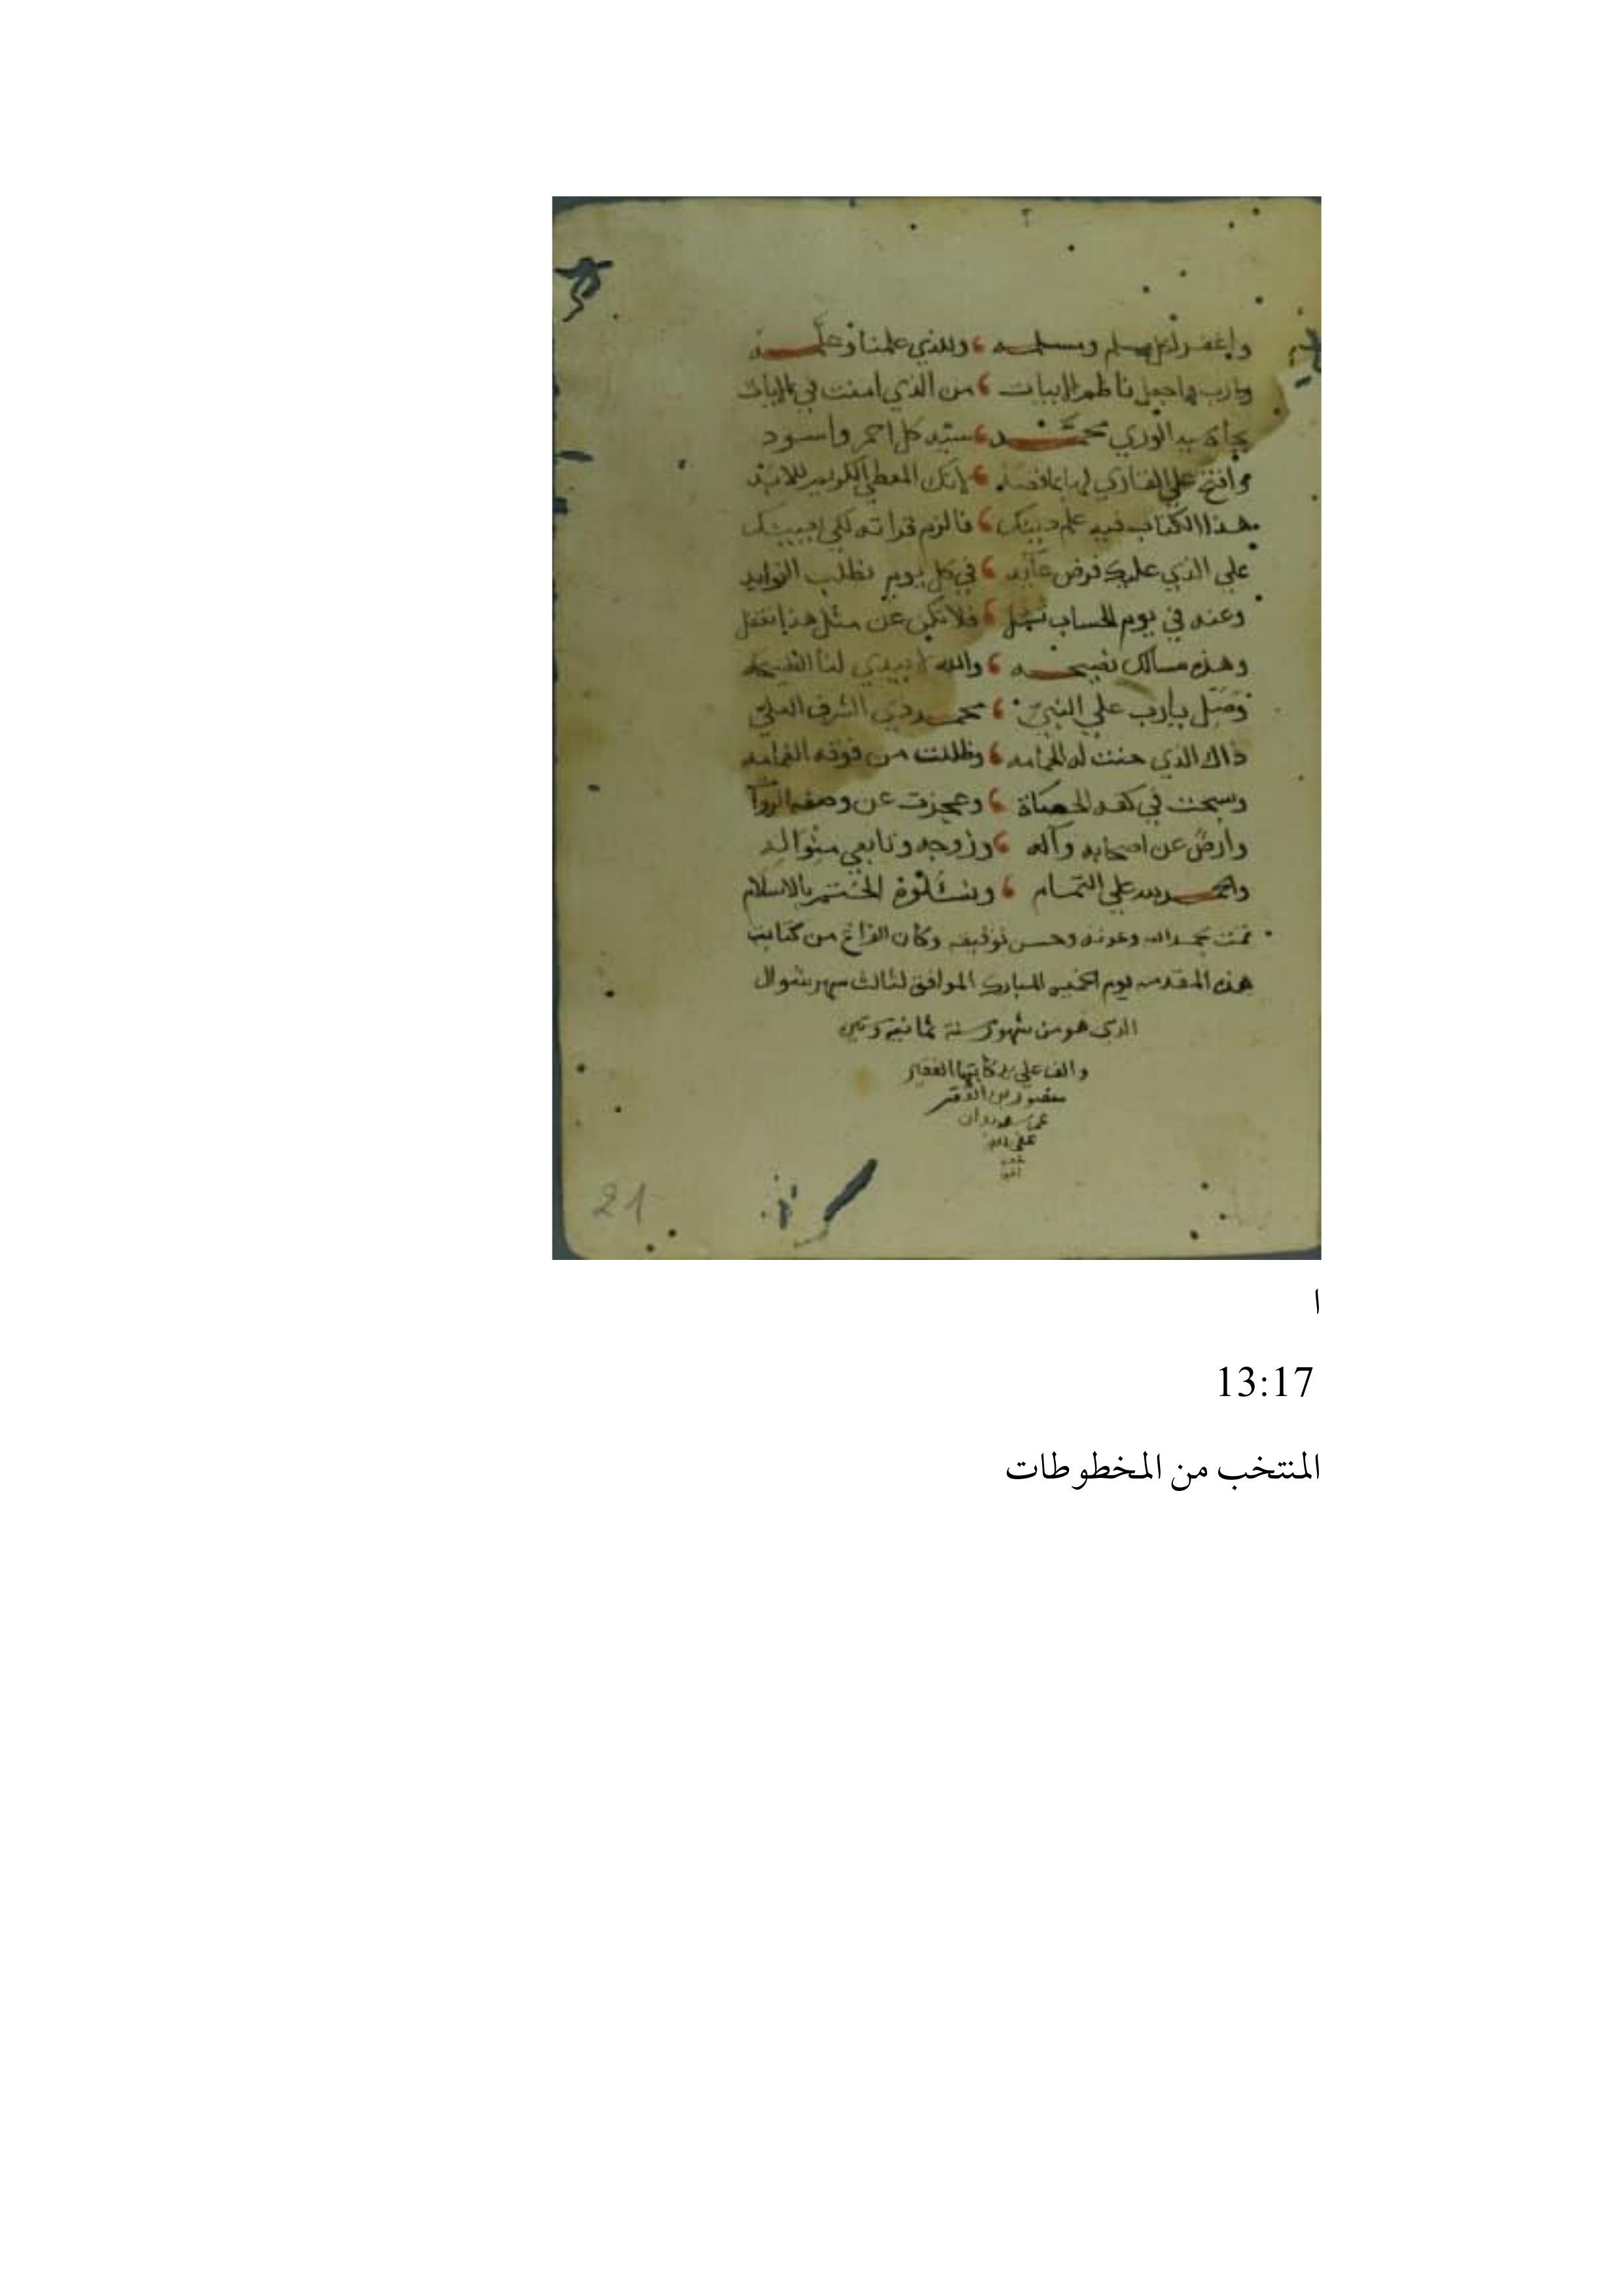 واغفر لكل مسلم ومسلمه ، وللذي علمنا وعلمه
ويارب واجعل ناظم الابيات ، من الذي امنت في
بجاه سيد الوري محمد ، سيد كل احمر واسود
وافتح علي القاري لها بما قصد ، لانك المعطي الكريم
هذا الكتاب فيه علم دينك ، فالزم قراته لكي
علي الذي عليك فرض عايد ، في كل يوم تطلب الزوايد
وعنه في يوم الحساب تسئل ، فلا تكن عن مثل هذا تغفل
وهذه مسالك نصيحه ، والله لا يبدي لنا الفضيحه
وصل يارب علي النبي ، محمد ذي الشرف العلي
ذاك الذي حنت له الحمامه ، وظللت من فوقه الغمامه
وسبحت في كفه الحصاة ، وعجزت عن وصفه الرواة
وارض عن اصحابه وآله ، وزوجه وتابعي منواله
والحمد لله علي التمام ، ونسئلوه الختم بالاسلام
تمت بحمد الله وعونه وحسن توفيقه وكان الفراغ من كتابت
هذه المقدمه يوم الخميس المبارك الموافق لثالث شهر شوال
الذي هو من شهور سنة ثمانية
والف علي يد كاتبها الفقير
منصور بن
21
ا
13:17
المنتخب من المخطوطات